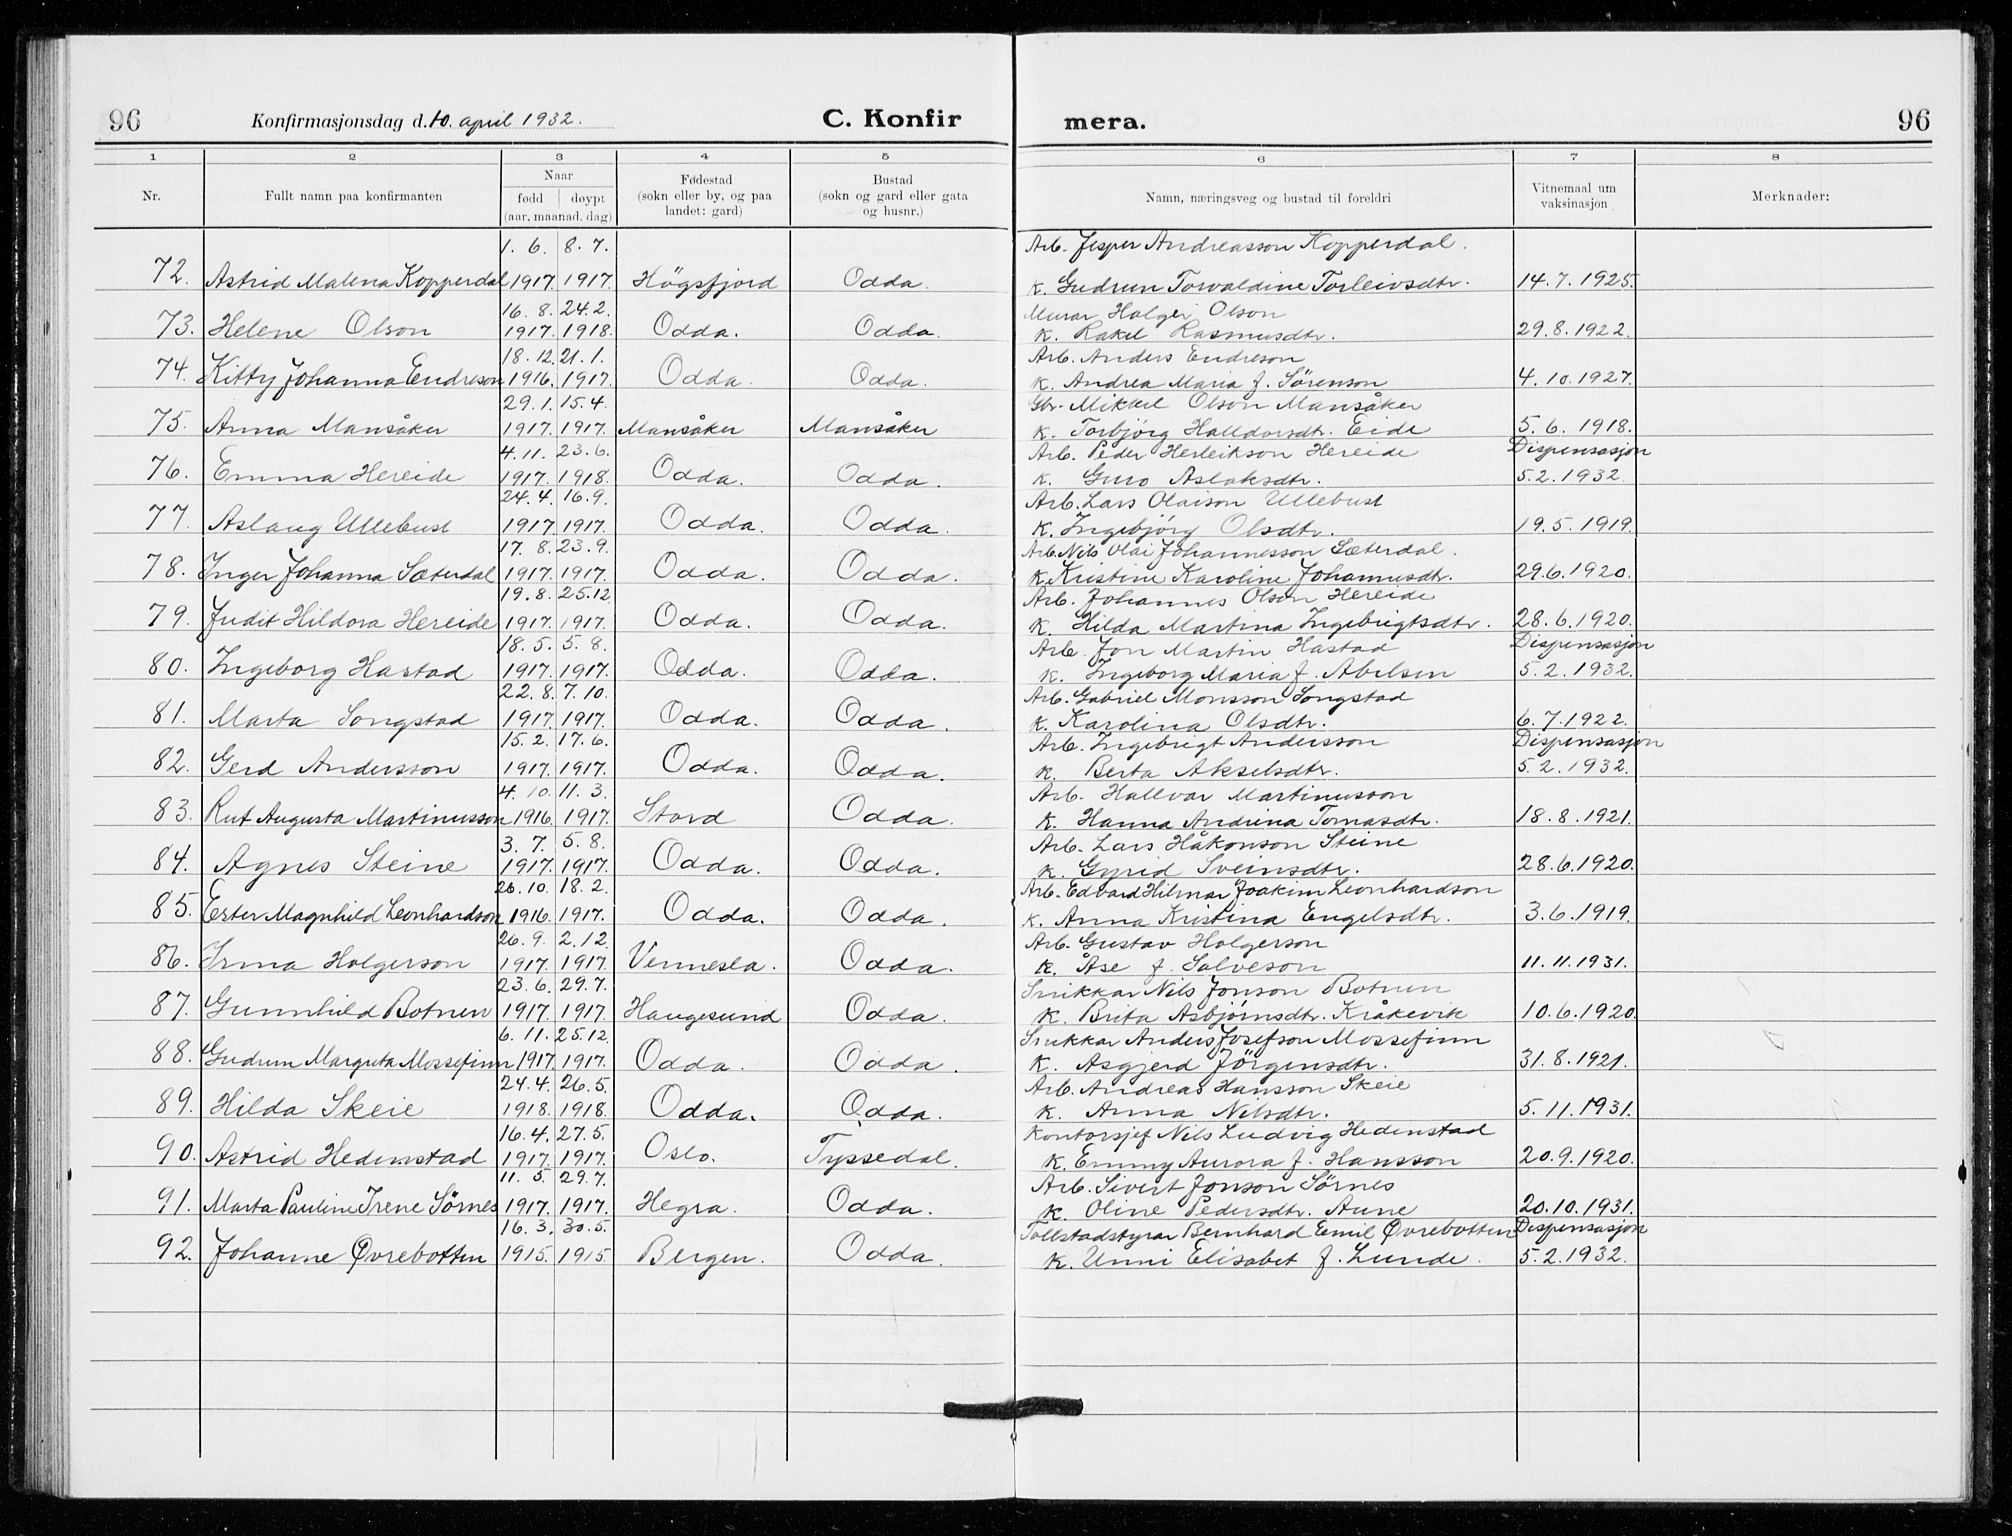 96
Konfirmasjonsdag d. 10. april 1932.
C. Konfir
mera.
96
1 2 3 4 5 6 7 8
Nr.
Fullt namn paa konfirmanten
Naar
fødd døypt
(aar, maanad, dag)
Fødestad
(sokn eller by, og paa
landet: gard)
Bustad
(sokn og gard eller gata
og husnr.)
Namn, næringsveg og bustad til foreldri
Vitnemaal um
vaksinasjon
Merknader:
1. 6. 8. 7. Arb. Jesper Andreasson Kopperdal.
72. Astrid Malena Kopperdal 1917. 1917. Högsfjord Odda. K. Gudrun Torvaldine Torleivsdtr. 14. 7. 1925.
16. 8. 24. 2. Murar Holger Olson
73. Helene Olson 1917. 1918. Odda. Odda. K. Rakel Rasmusdtr. 29. 8. 1922.
18. 12. 21. 1. Arb. Anders Endreson
74. Kitty Johanna Endreson 1916. 1917. Odda. Odda. K. Andrea Maria f. Sörenson 4. 10. 1927.
29. 1. 15. 4. Gbr. Mikael Olson Mansåker
75. Anna Mansåker 1917. 1917. Mansåker Mansåker K. Torbjörg Halldorsdtr. Eide 5. 6. 1918.
4. 11. 23. 6. Arb. Peder Herleikson Hereide Dispensasjon
76. Emma Hereide 1917. 1918. Odda. Odda. K. Guro Aslaksdtr. 5. 2. 1932.
24. 4. 16. 9. Arb. Lars Olaison Ullebust
77. Aslaug Ullebust 1917. 1917. Odda. Odda. K. Ingebjörg Olsdtr. 19. 5. 1919.
17. 8. 23. 9. Arb. Nils Olai Johannesson Sæterdal.
78. Inger Johanna Sæterdal 1917. 1917. Odda. Odda. K. Kristine Karoline Johannesdtr. 29. 6. 1920.
19. 8. 25. 12. Arb. Johannes Olson Hereide
79. Judit Hildora Hereide 1917. 1917. Odda. Odda. K. Hilda Martina Ingebrigtsdtr. 28. 6. 1920.
18. 5. 5. 8. Arb. Jon Martin Hastad Dispensasjon
80. Ingeborg Hastad 1917. 1917. Odda. Odda. K. Ingeborg Maria f. Abelsen 5. 2. 1932.
22. 8. 7. 10. Arb. Gabriel Monsson Songstad
81. Marta Songstad 1917. 1917. Odda. Odda. K. Karolina Olsdtr. 6. 7. 1922.
15. 2. 17. 6. Arb. Ingebrigt Andersson Dispensasjon
82. Gerd Andersson 1917. 1917. Odda. Odda. K. Berta Akselsdtr. 5. 2. 1932.
4. 10. 11. 3. Arb. Hallvar Martinusson
83. Rut Augusta Martinusson 1916. 1917. Stord Odda. K. Hanna Andrina Tomasdtr. 18. 8. 1921.
3. 7. 5. 8. Arb. Lars Håkonson Steine
84. Agnes Steine 1917. 1917. Odda. Odda. K. Gyrid Sveinsdtr. 28. 6. 1920.
26. 10. 18. 2. Arb. Edvard Hilmar Joakim Leonhardson
85. Ester Magnhild Leonhardson 1916. 1917. Odda. Odda. K. Anna Kristina Engelsdtr. 3. 6. 1919.
26. 9. 2. 12. Arb. Gustav Holgerson
86. Irma Holgerson 1917. 1917. Vennesla. Odda. K. Åse f. Salveson 11. 11. 1931.
23. 6. 29. 7. Snikkar Nils Jonson Botnen
87. Gunnhild Botnen 1917. 1917. Haugesund Odda. K. Brita Asbjörnsdtr. Kråkevik 10. 6. 1920.
6. 11. 25. 12. Snikkar Anders Josefson Mossefinn
88. Gudrun Margreta Mossefinn 1917. 1917. Odda. Odda. K. Asgjerd Jörgensdtr. 31. 8. 1921.
24. 4. 26. 5. Arb. Andreas Hansson Skeie
89. Hilda Skeie 1918. 1918. Odda. Odda. K. Anna Nilsdtr. 5. 11. 1931.
16. 4. 27. 5. Kontorsjef Nils Ludvig Hedenstad
90. Astrid Hedenstad 1917. 1917. Oslo. Tyssedal. K. Emmy Aurora f. Hansson 20. 9. 1920.
11. 5. 29. 7. Arb. Sivert Jonson Sörnes
91. Marta Pauline Irene Sörnes 1917. 1917. Hegra. Odda. K. Oline Pedersdtr. Aune 20. 10. 1931.
16. 3. 30. 5. Tollstadstyrar Bernhard Emil Øvrebotten Dispensasjon
92. Johanne Øvrebotten 1915. 1915. Bergen. Odda. K. Unni Elisabet f. Lunde. 5. 2. 1932.